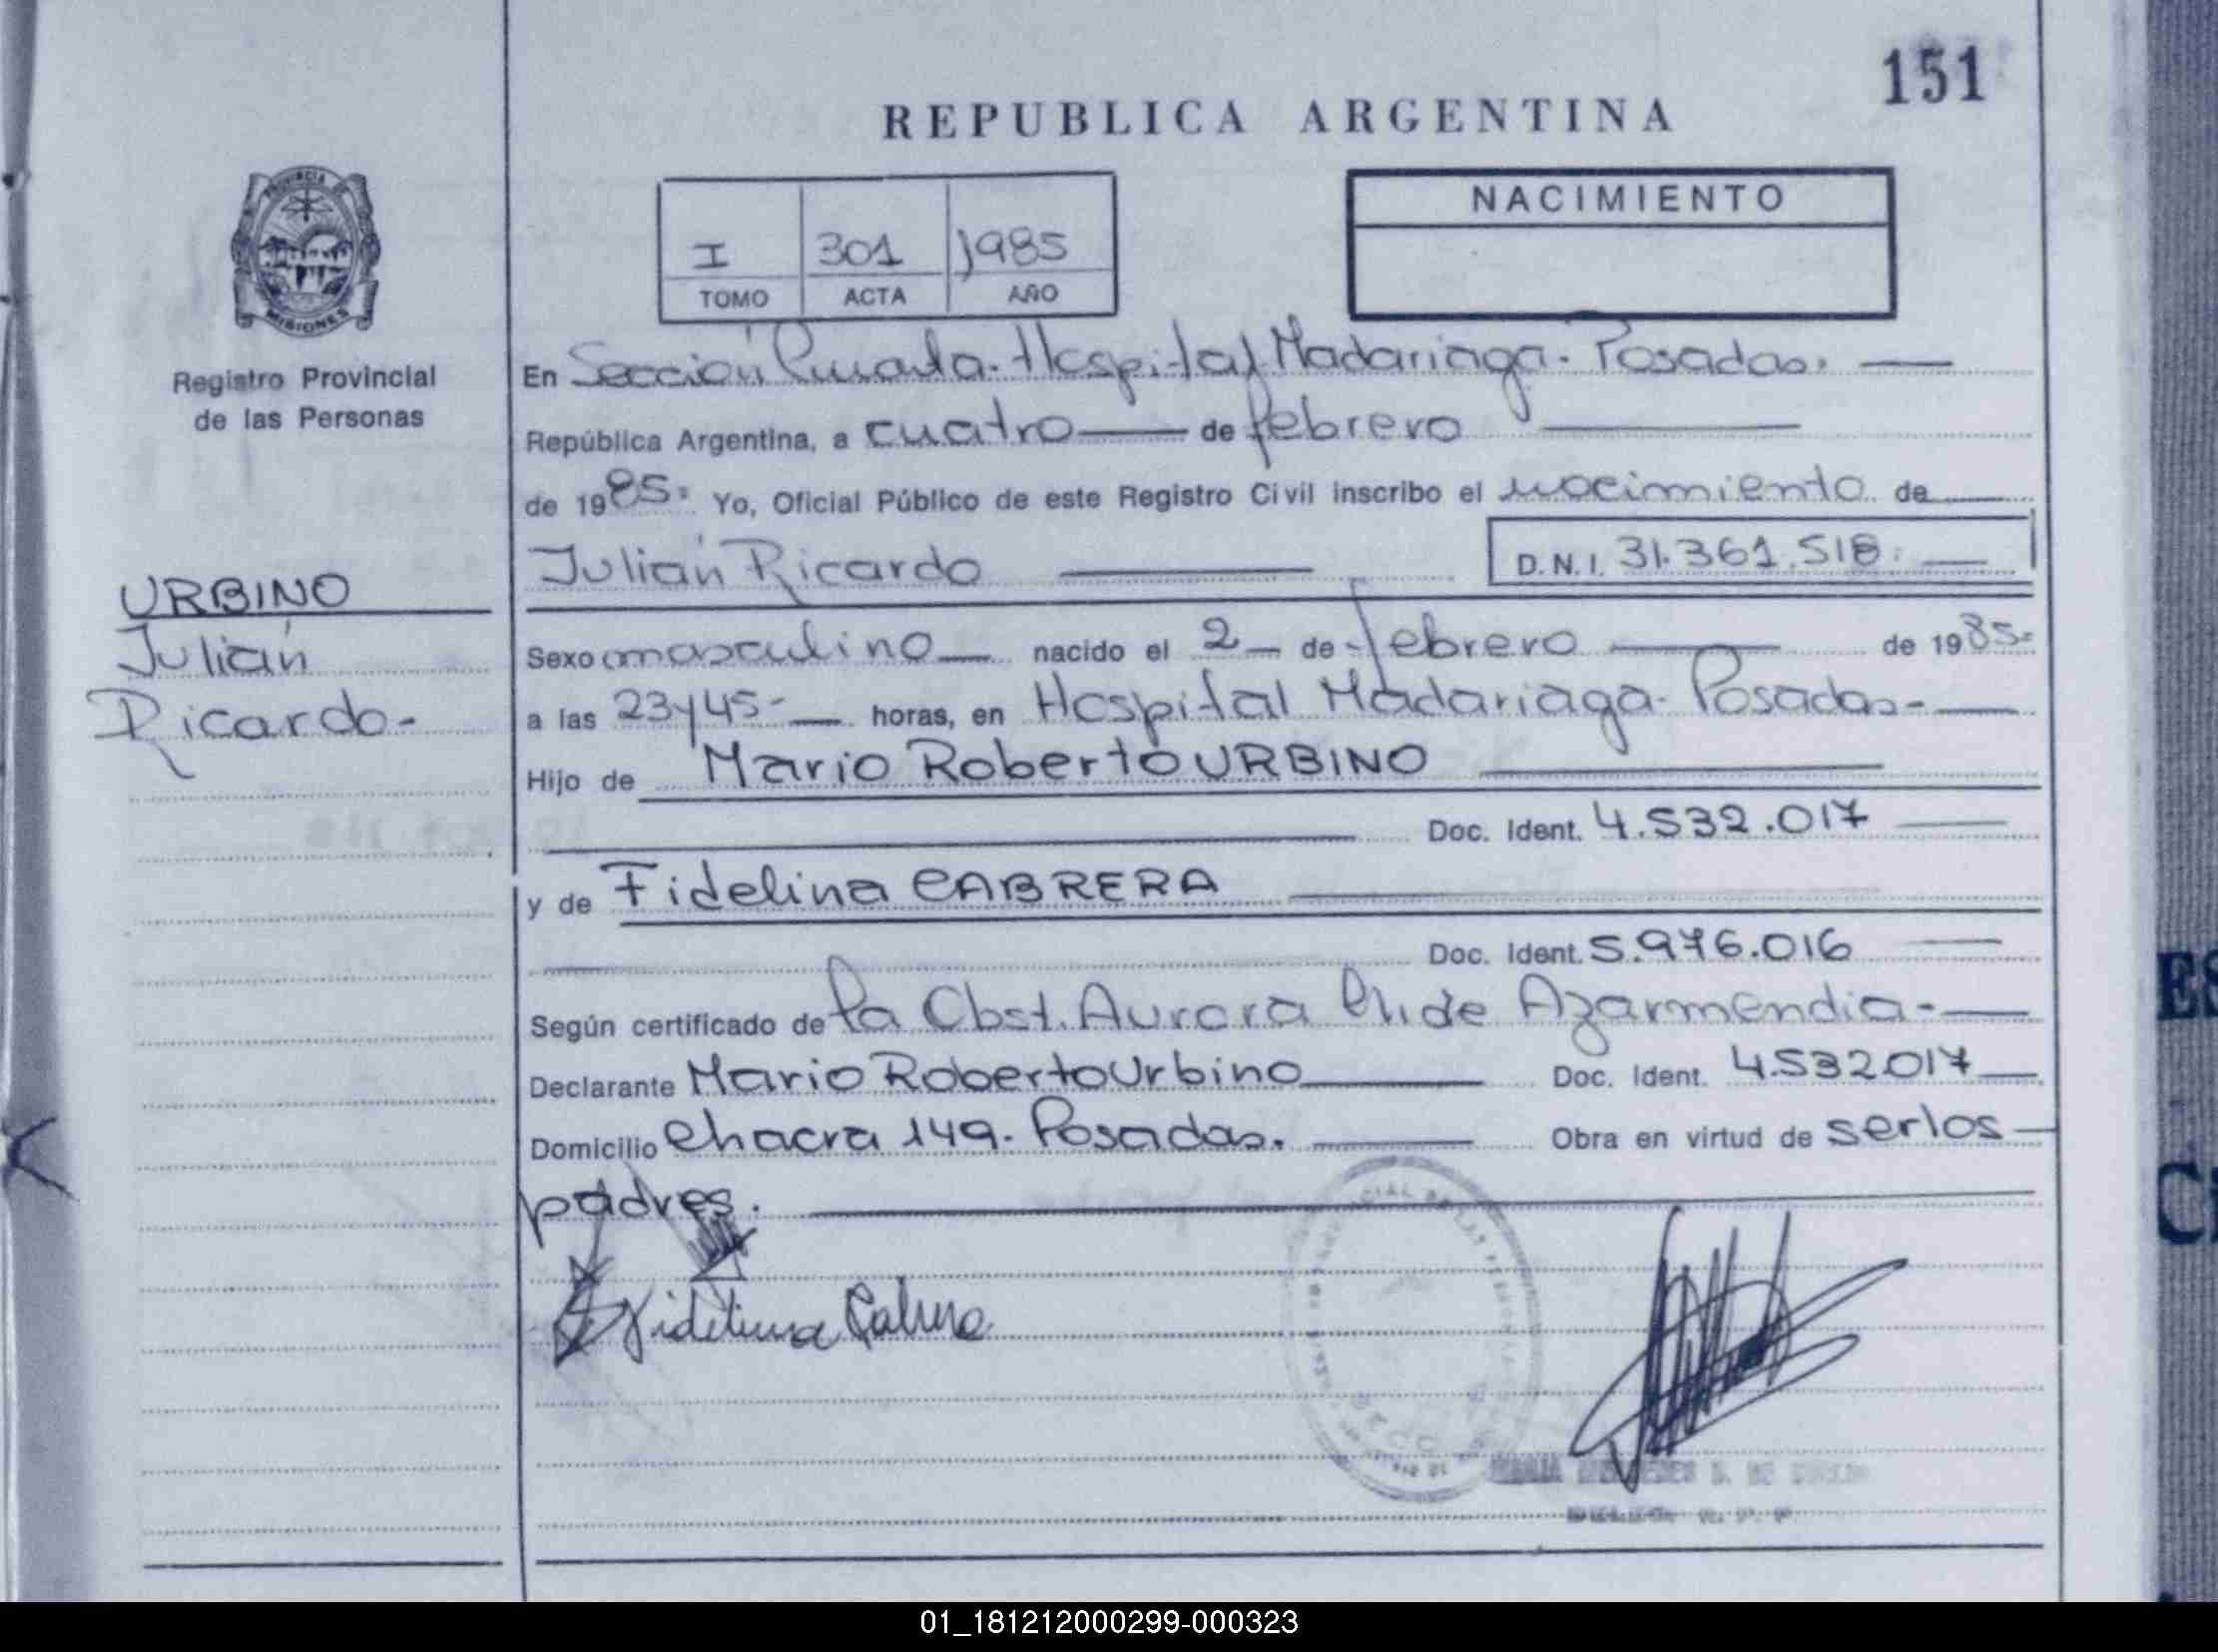 151
REPUBLICA ARGENTINA
PROVINCIA DE
MISIONES
Registro Provincial
de las Personas
I 301 1985
TOMO ACTA AÑO
NACIMIENTO
En Sección Cuarta. Hospital Madariaga. Posadas.
República Argentina, a cuatro de febrero
de 1985. Yo, Oficial Público de este Registro Civil inscribo el nacimiento de
Julián Ricardo D.N.I. 31.361.518.
URBINO
Julián
Ricardo-
Sexo masculino nacido el 2 de febrero de 1985-
a las 23y45- horas, en Hospital Madariaga- Posadas-
Hijo de Mario Roberto URBINO
Doc. Ident. 4.532.017
y de Fidelina CABRERA
Doc. Ident. 5.976.016
Según certificado de la Obst. Aurora Elide Azarmendia-
Declarante Mario Roberto Urbino Doc. Ident. 4.532017
Domicilio Chacra 149. Posadas. Obra en virtud de ser los
padres.
Fidelina
DE
ES
C
01_181212000299-000323